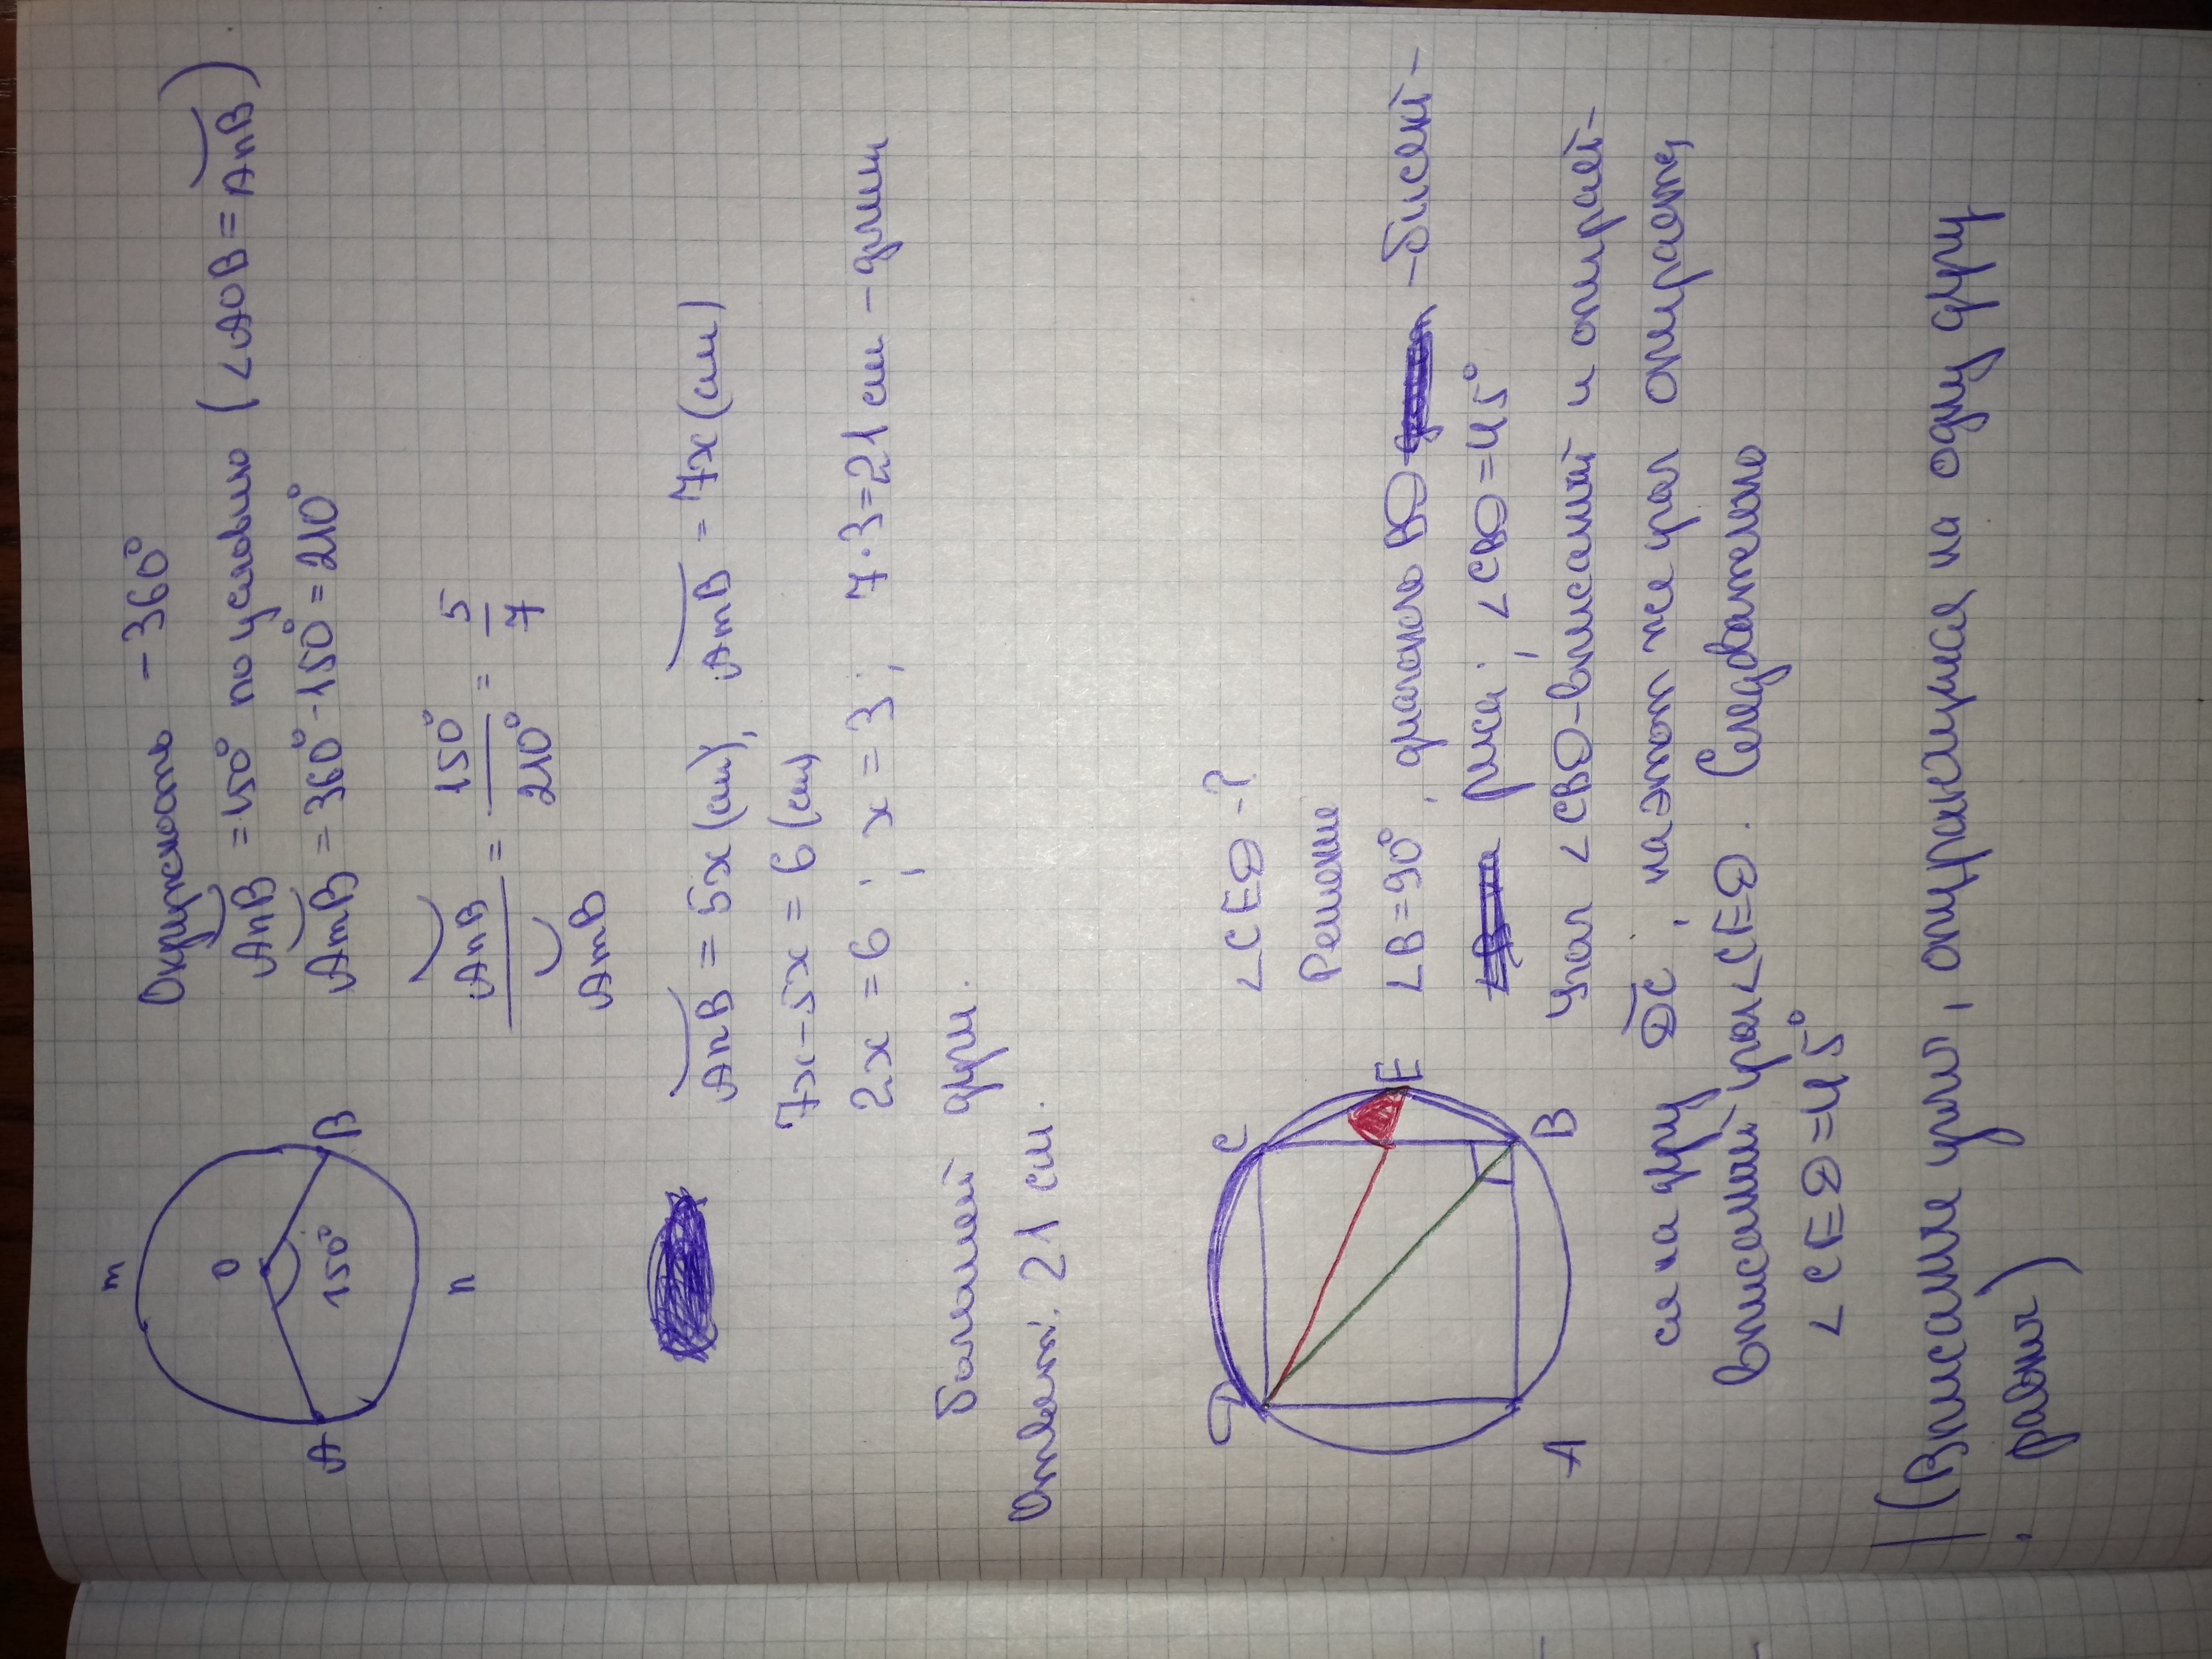 m
O
150°
A
B
n
Окружность - 360°
AnB = 150° по условию (∠AOB = AnB)
AmB = 360° - 150° = 210°
AnB / AmB = 150° / 210° = 5 / 7
AnB = 5x (см), AmB = 7x (см)
7x - 5x = 6 (см)
2x = 6 ; x = 3 ; 7·3 = 21 см - длина
большей дуги.
Ответ: 21 см.
D
C
E
A
B
∠CED - ?
Решение
∠B = 90°, диагональ BD - биссект-
риса ; ∠CBD = 45°
Угол ∠CBD - вписанный и опирает-
ся на дугу DC, на этот же угол опирается
вписанный угол ∠CED. Следовательно
∠CED = 45°
(Вписанные углы, опирающиеся на одну дугу
, равны)